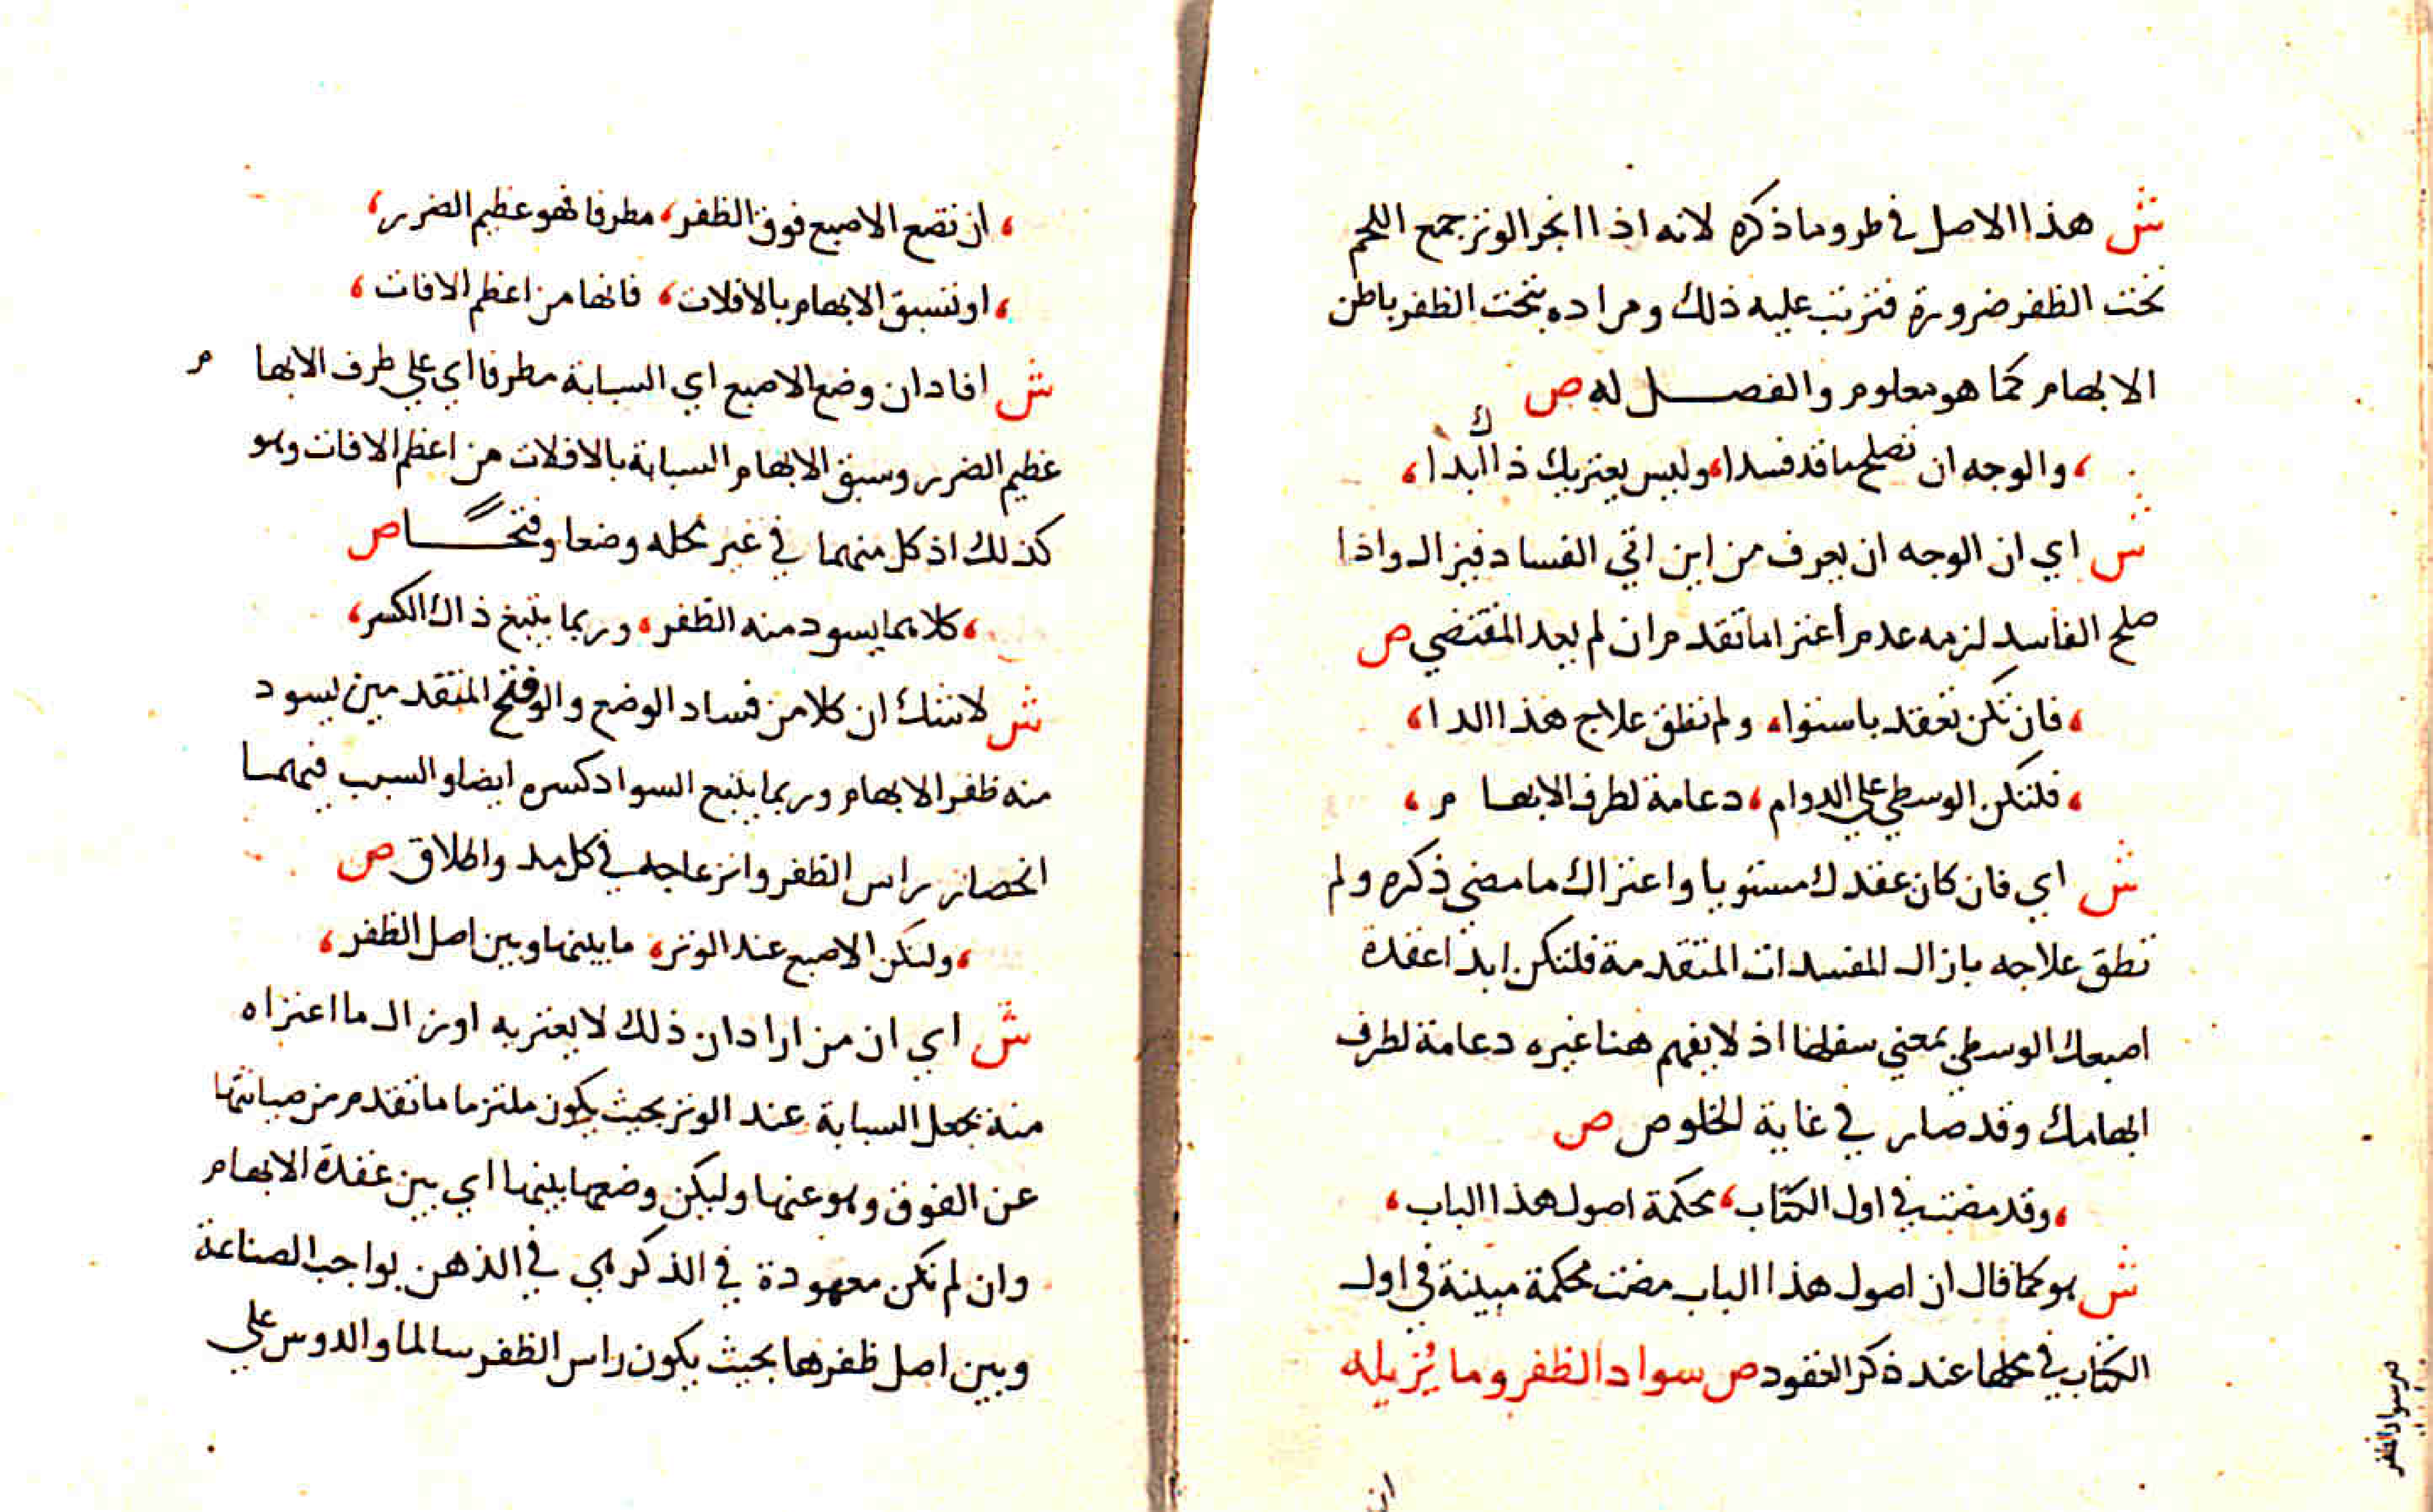 ش هذا الاصل في طرو ما ذكره لانه اذا انجر الوتر جمع اللحم
تحت الظفر ضرورة فترتب عليه ذلك ومراده بتحت الظفر باطن
الابهام كما هو معلوم والفصـــل له ص
، والوجه ان تصلح ما قد فسدا، وليس يعتريك ذاك ابدا،
ش اي ان الوجه ان يعرف من اين اتي الفساد فيزال واذا
صلح الفاسد لزمه عدم أعتزا ما تقدم ان لم يعد المقتضي ص
، فان تكن تعقد باستوا، ولم تطق علاج هذا الدا،
، فلتكن الوسطي علي الدوام، دعامة لطرف الابها م،
ش اي فان كان عقدك مستويا واعتراك ما مضي ذكره ولم
تطق علاجه بازال المفسدات المتقدمة فلتكن ابدا عقدة
اصبعك الوسطي بمعني سفلها اذ لا يفهم هنا غيره دعامة لطرف
ابهامك وقد صار في غاية الخلوص ص
، وقد مضت في اول الكتاب، محكمة اصول هذا الباب،
ش هو كما قال ان اصول هذا الباب مضت محكمة مبينة في اول
الكتاب في محلها عند ذكر العقود ص سواد الظفر وما يُزيله
سواد الظفر
ان
، ان تضع الاصبع فوق الظفر، مطرفا فهو عظيم الضرر،
، او تسبق الابهام بالافلات، فانها من اعظم الافات،
ش افاد ان وضع الاصبع اي السبابة مطرفا اي علي طرف الابها م
عظيم الضرر وسبق الابهام السبابة بالافلات من اعظم الافات وهو
كذلك اذ كل منهما في غير محله وضعا وفتحـــا ص
، كلاهما يسود منه الظفر، وربما يتبع ذاك الكسر،
ش لا شك ان كلا من فساد الوضع والفتح المتقدمين يسود
منه ظفر الابهام وربما يتبع السواد كسره ايضا والسبب فيهما
انحصار راس الظفر وانزعاجه في كل مد واطلاق ص
، ولتكن الاصبع عند الوتر، ما بينها وبين اصل الظفر،
ش اي ان من اراد ان ذلك لا يعتريه او زال ما اعتراه
منه يجعل السبابة عند الوتر بحيث يكون ملتزما ما تقدم من صيانتها
عن الفوق وهو عنها وليكن وضعها بينها اي بين عقدة الابهام
وان لم تكن معهودة في الذكر هي في الذهن بواجب الصناعة
وبين اصل ظفرها بحيث يكون راس الظفر سالما والدوس علي